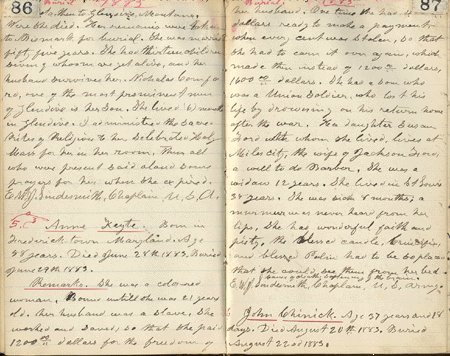 86
brother to Geneva, Montana,
were like his. Her remains were taken
to Bismark for burial. She was ninety
fift, five years. She had thirteen children
seven of whom are yet alive, and her
husband survives her. Nicholas Compo
ro, one of the most prominent men
of Glendive is her Son. She lived 6 months
in Glendive. I administered the Sacra-
ments of Religion to her, celebrated Holy
Mass for her in her room. Then all
who were present said aloud some
prayers for her, when she expired.
E. W. J. Lindesmith, Chaplain U.S.A.
5
Anna Keyte. Born in
Frederick town Maryland. Age
98 years. Died June 28th 1883. Buried
June 29th 1883.
Remarks. She was a colored
woman. Bound until she was 21 years
old. Her husband was a slave. She
worked and saved, so that she paid
1200 dollars for the freedom of
87
her husband. One time she had 4
dollars ready to make a payment
when every cent was stolen, so that
she had to earn it over again, which
made then instead of 1200 dollars,
1600 dollars. She had a son who
was a Union Soldier, who lost his
life by drowning on his return home
after the war. Her daughter Susan
with whom she lived, lives at
Miles city, the wife of Jackson
a well to do Barber. She was a
widow 12 years. She lived in St Louis
38 years. She was sick 8 months, a
murmur was never heard from her
lips. She had wonderful faith and
piety, the blessed candle, Crucifix,
and blessed Palm had to be so placed
that she could see them from her bed.
E. W. J. Lindesmith, Chaplain, U.S. Army
6
John Chinick. Age 37 years and 18
days. Died August 20th 1883. Buried
August 22nd 1883.